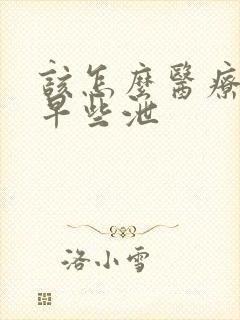 該怎麼醫療
早些泄
洛小雪